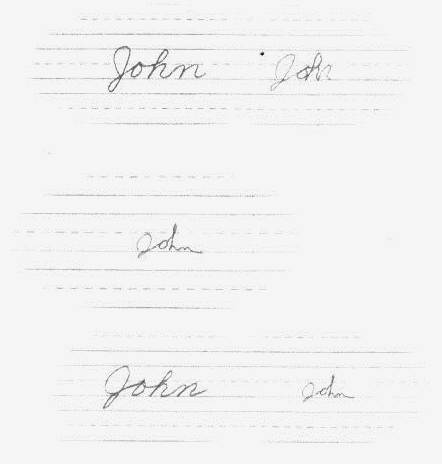 John John
John
John John